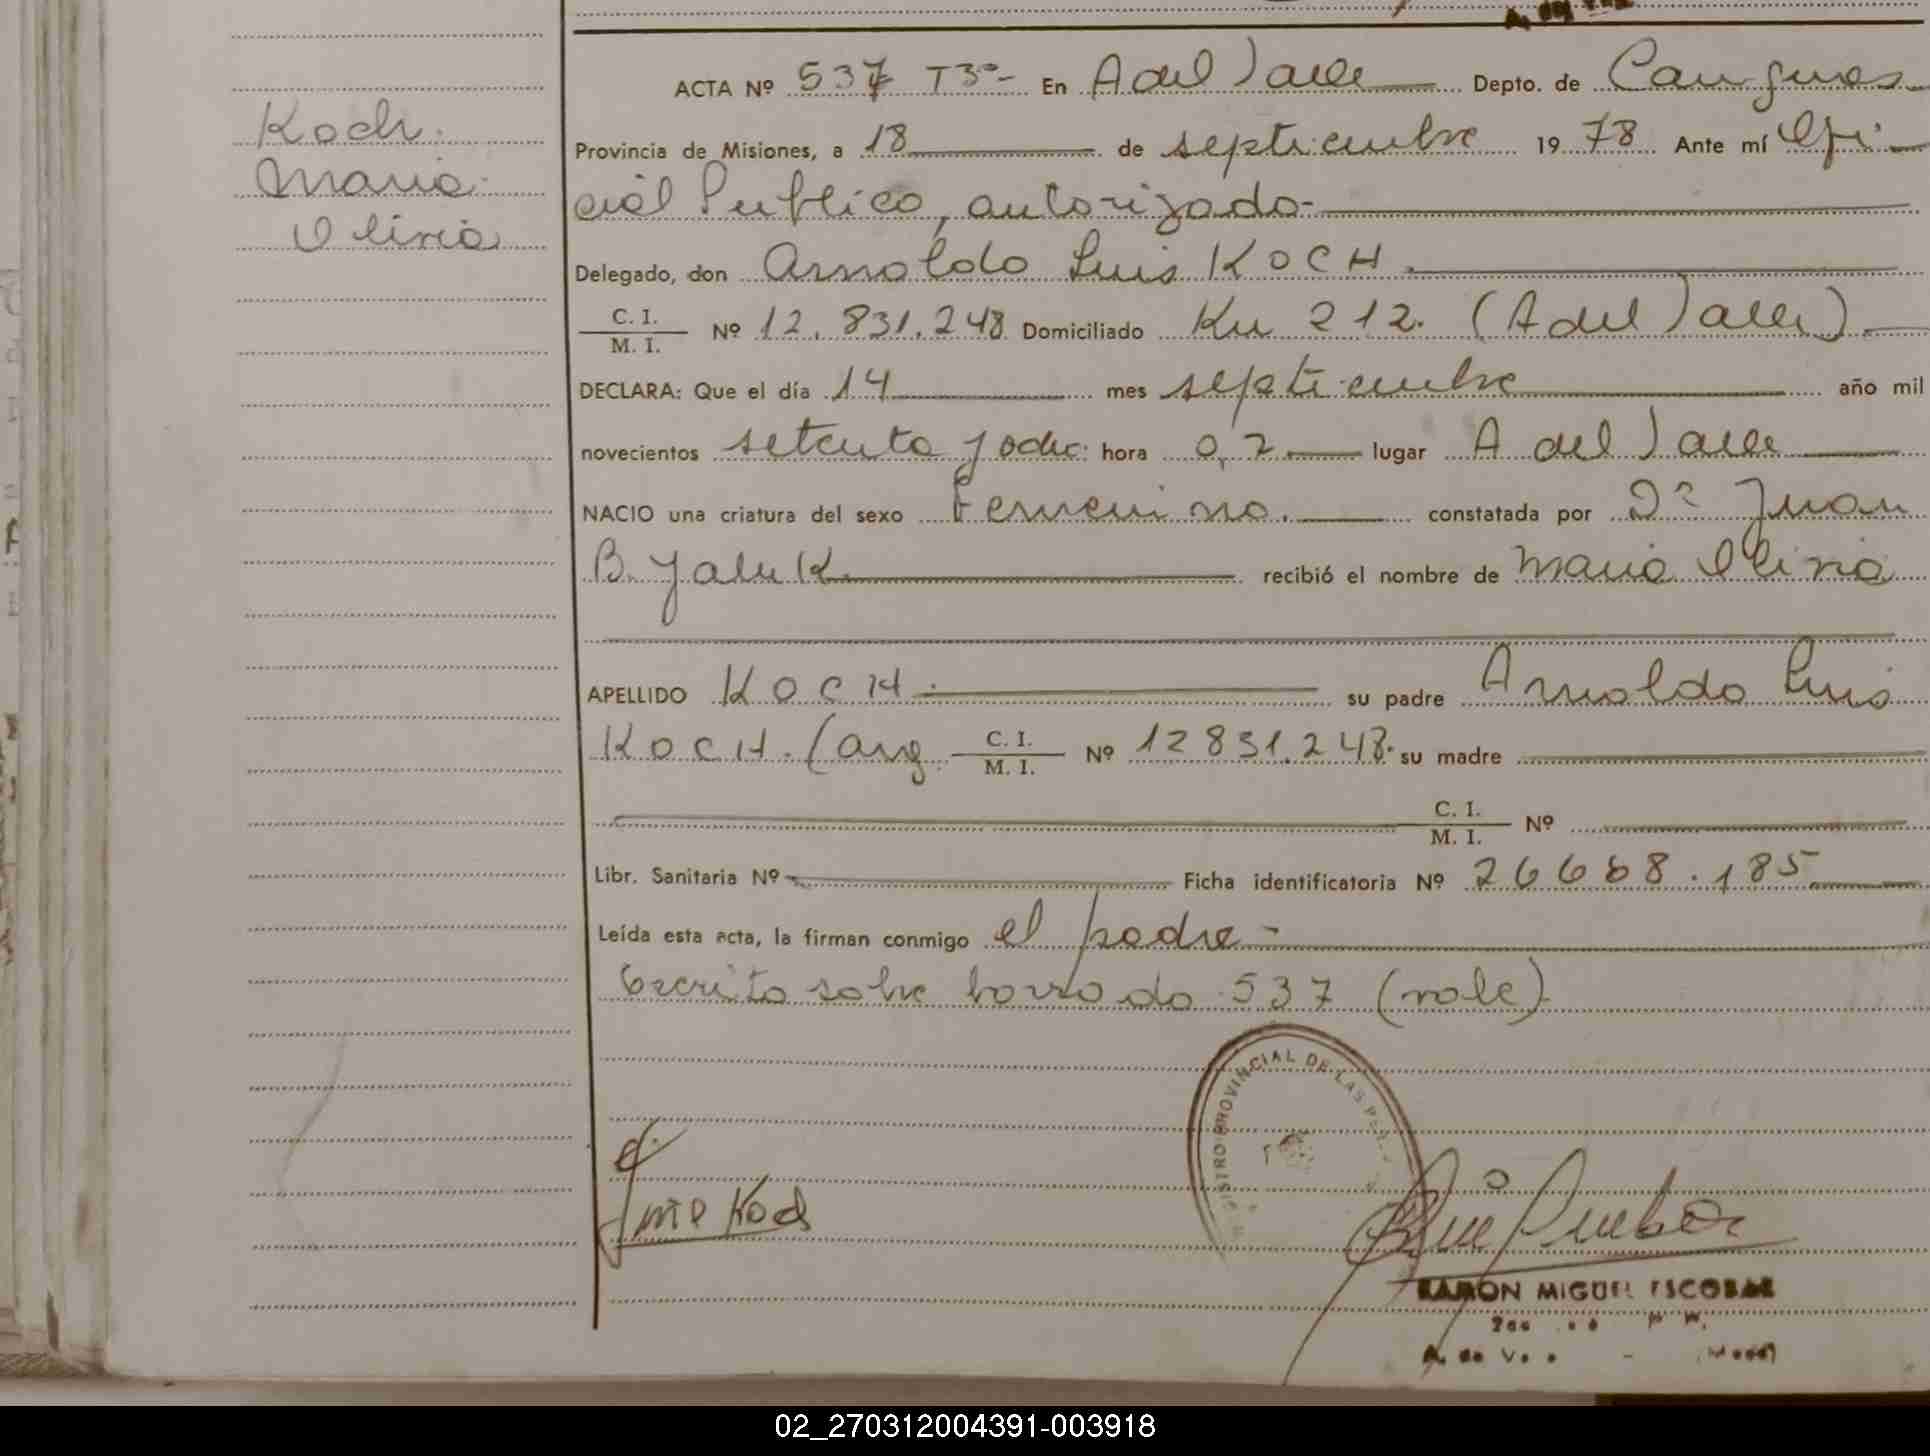 Koch
Maria
Oliria
ACTA Nº 537 T3º- En A del Valle Depto. de Cainguas
Provincia de Misiones, a 18 de septiembre 1978 Ante mí Ofi-
cial Publico, autorizado-
Delegado, don Arnoldo Luis KOCH.
C. I.
M. I. Nº 12.831.248 Domiciliado Km 212. (A del Valle).
DECLARA: Que el día 14 mes septiembre año mil
novecientos setenta y ocho hora 0,2 lugar A del Valle
NACIO una criatura del sexo Femenino. constatada por Dr Juan
B. Yaluk recibió el nombre de Maria Oliria
APELLIDO KOCH. su padre Arnoldo Luis
KOCH. (arg. C. I.
M. I. Nº 12831.248. su madre
C. I.
M. I. Nº
Libr. Sanitaria Nº Ficha identificatoria Nº 26668.185
Leída esta acta, la firman conmigo el padre-
Escrito sobre borrado 537 (vale)
REGISTRO PROVINCIAL DE LAS PERS
Koch
RAMON MIGUEL ESCOBAR
02_270312004391-003918